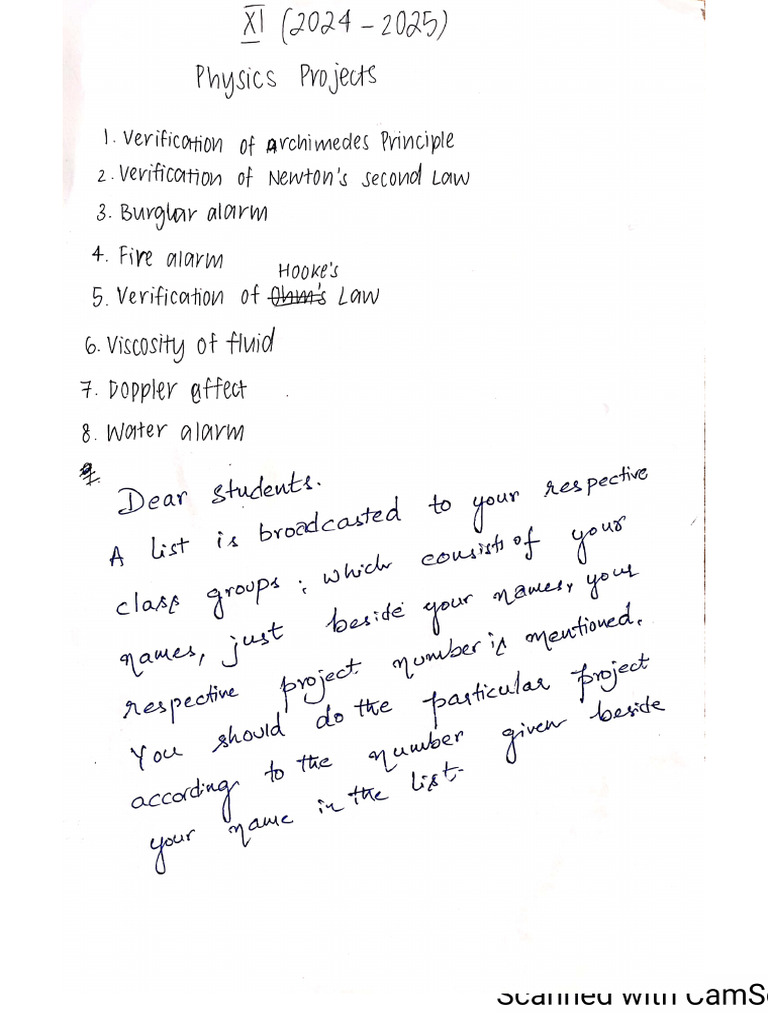 XI (2024 - 2025)
Physics Projects
1. Verification of Archimedes Principle
2. Verification of Newton's second Law
3. Burglar alarm
4. Fire alarm
Hooke's
5. Verification of Ohm's Law
6. Viscosity of fluid
7. Doppler affect
8. Water alarm
Dear students.
A list is broadcasted to your respective
class groups; which consists of your
names, just beside your names, your
respective project number is mentioned.
You should do the particular project
according to the number given beside
your name in the list.
Scanned with CamS